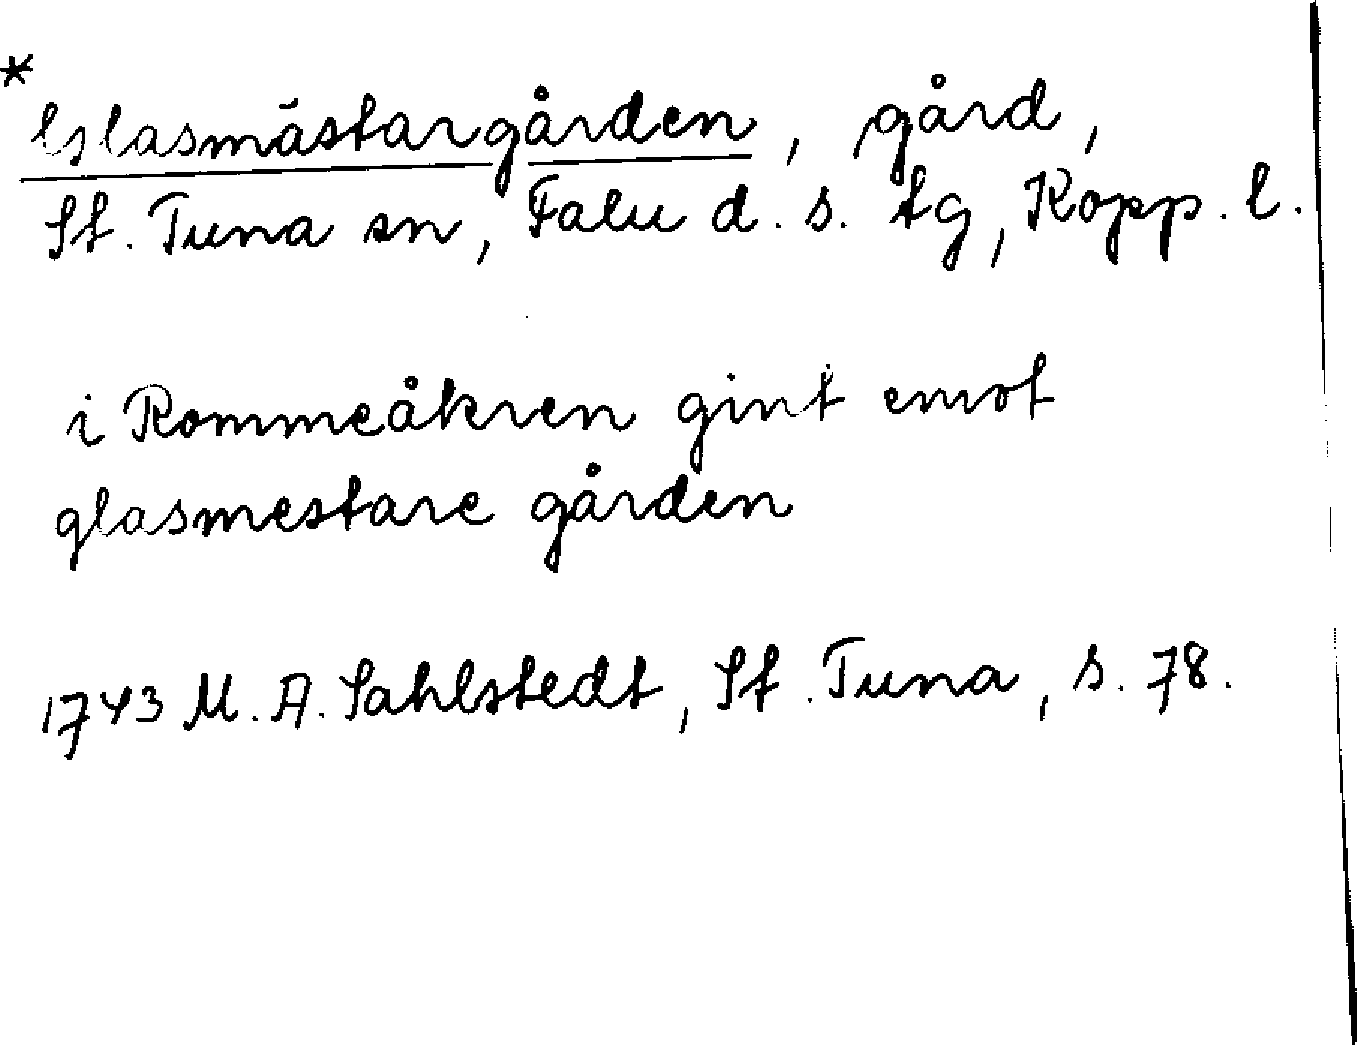 * Glasmästargården, gård,
St. Tuna sn, Falu d. s. tg, Kopp. l.
i Rommeåkren gint emot
glasmestare gården
1743 M. A. Sahlstedt, St. Tuna, s. 78.